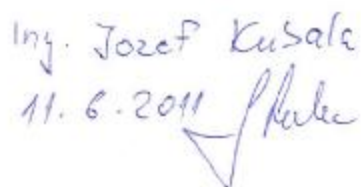 Ing. Jozef Kubala
11.6.2011